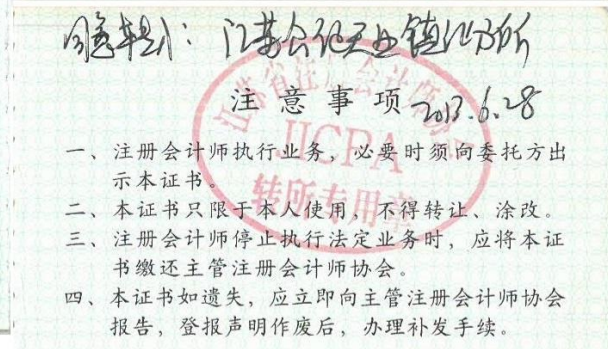 同意转到：江苏公证天业镇江分所
注意事项 2013.6.28
江苏省注册会计师协会
JICPA
转所专用章
一、注册会计师执行业务，必要时须向委托方出
示本证书。
二、本证书只限于本人使用，不得转让、涂改。
三、注册会计师停止执行法定业务时，应将本证
书缴还主管注册会计师协会。
四、本证书如遗失，应立即向主管注册会计师协会
报告，登报声明作废后，办理补发手续。